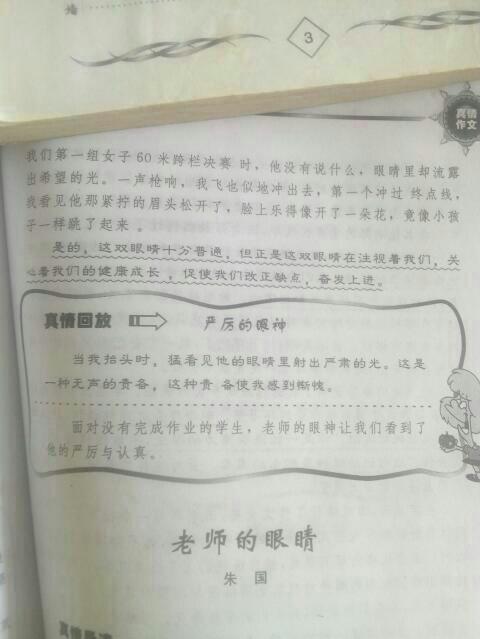 墙
3
真情
作文
我们第一组女子 60 米跨栏决赛 时，他没有说什么，眼睛里却流露
出希望的光。一声枪响，我飞也似地冲出去，第一个冲过 终点线，
我看见他那紧拧的眉头松开了，脸上乐得像开了一朵花，竟像小孩
子一样跳了起来 。
是的，这双眼睛十分普通，但正是这双眼睛在注视着我们，关
心着我们的健康成长 ，促使我们改正缺点，奋发上进。
真情回放
严厉的眼神
当我抬头时，猛看见他的眼睛里射出严肃的光。这是
一种无声的责备，这种责 备使我感到惭愧。
面对没有完成作业的学生，老师的眼神让我们看到了
他的严厉与认真。
老师的眼睛
朱 国
真情